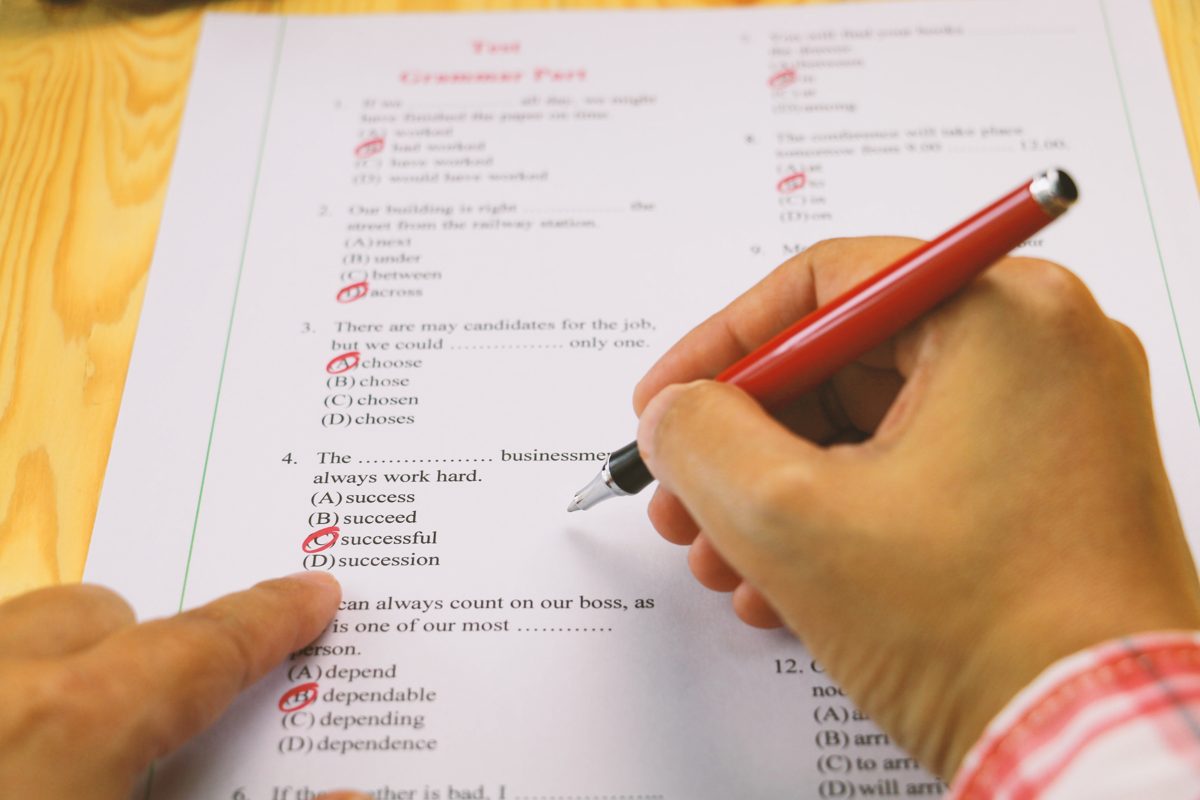 Test
Grammar Part
1. If we .................. all day, we might
have finished the paper on time.
(A) worked
(B) had worked
(C) have worked
(D) would have worked
2. Our building is right .................. the
street from the railway station.
(A) next
(B) under
(C) between
(D) across
3. There are may candidates for the job,
but we could ................ only one.
(A) choose
(B) chose
(C) chosen
(D) choses
4. The ................. businessme
always work hard.
(A) success
(B) succeed
(C) successful
(D) succession
can always count on our boss, as
is one of our most ............
person.
(A) depend
(B) dependable
(C) depending
(D) dependence
6. If the ather is bad, I ....................
You will find your books ....................
the drawer.
(A) between
(B) in
(D) among
8. The conference will take place
tomorrow from 9.00 .......... 12.00.
(A) at
(B) to
(C) in
(D) on
9.
12.
(A) a
(B) arri
(C) to arri
(D) will arriv